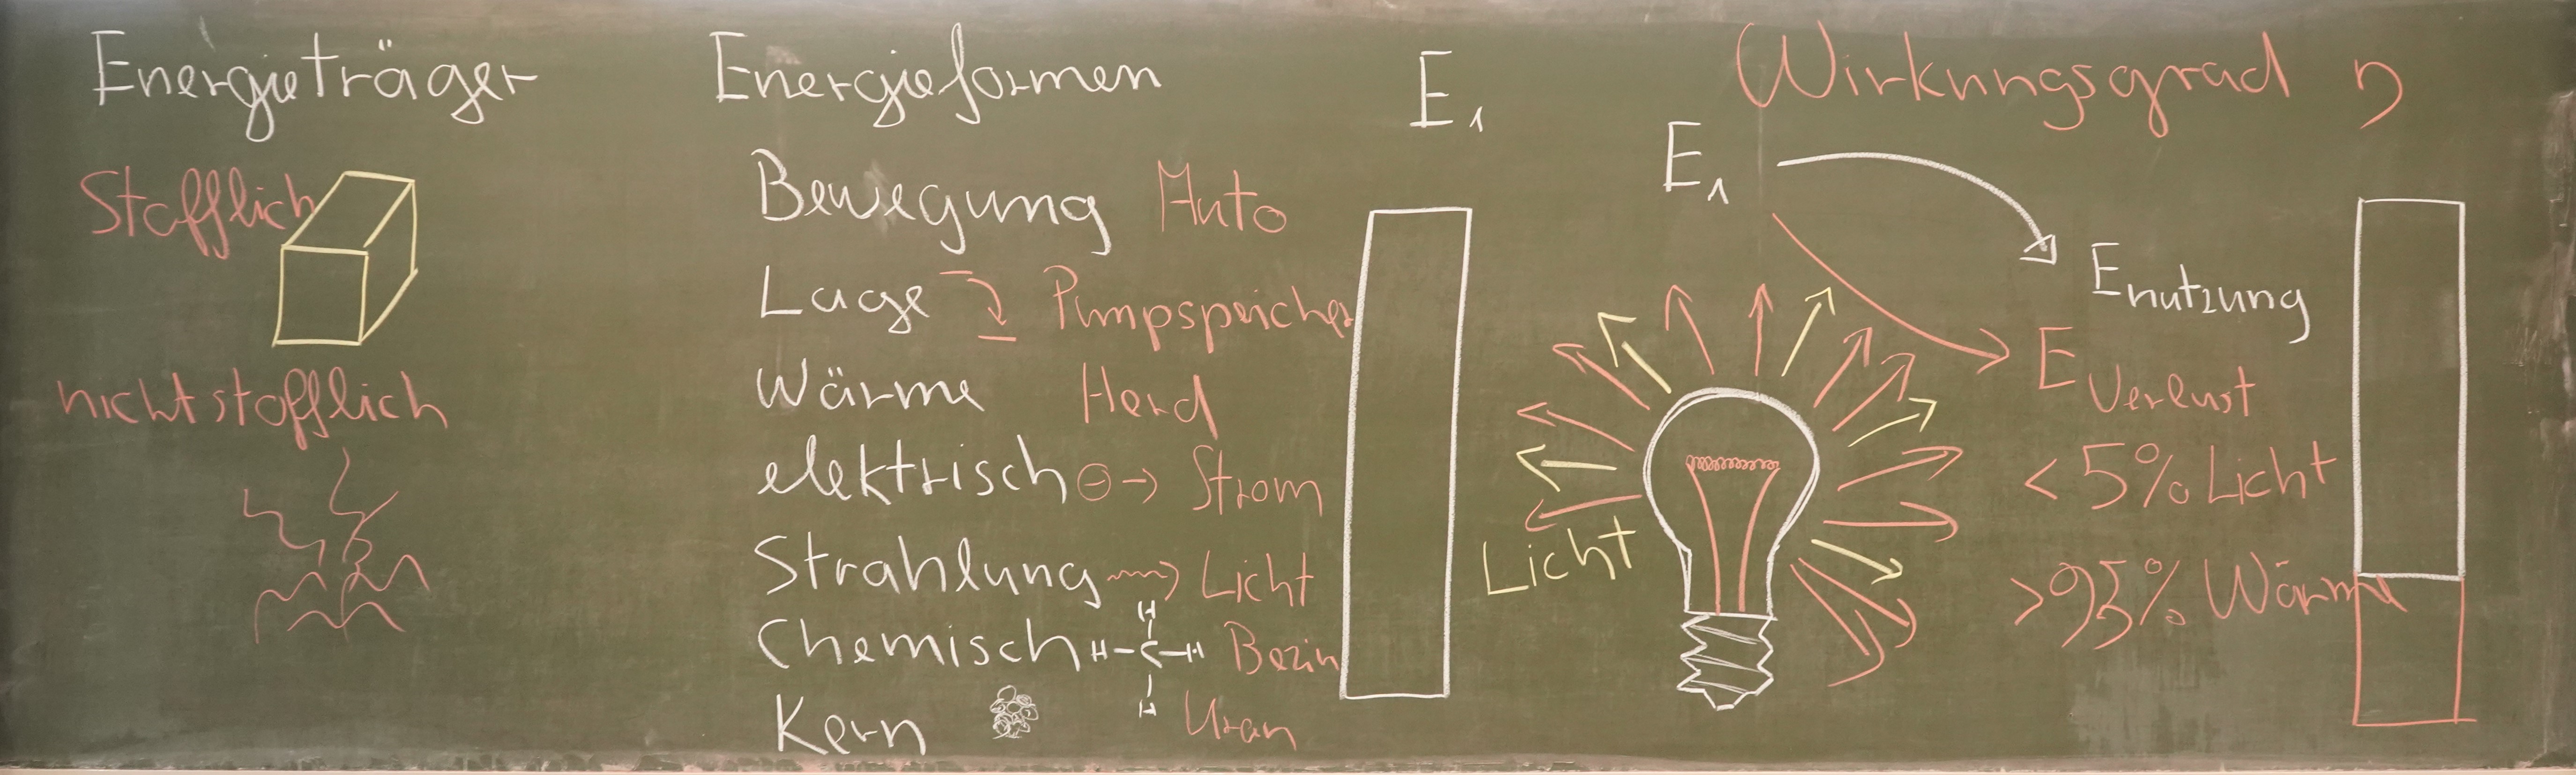 Energieträger
Stofflich
nicht stofflich
Energieformen
Bewegung Auto
Lage Pumpspeicher
Wärme Herd
elektrisch ⊖→ Strom
Strahlung → Licht
Chemisch H-C-H Bezin
H
H
Kern Uran
E1
Wirkungsgrad η
E1
Enutzung
EVerlust
< 5% Licht
>95% Wärme
Licht